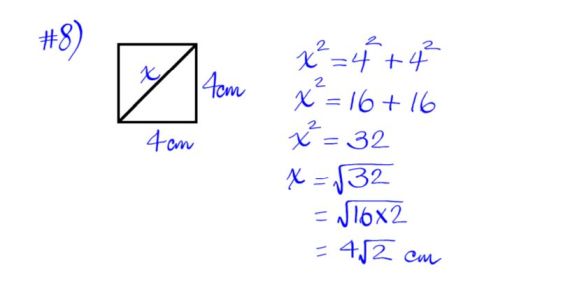 #8)
x
4cm
4cm
x² = 4² + 4²
x² = 16 + 16
x² = 32
x = √32
= √16×2
= 4√2 cm